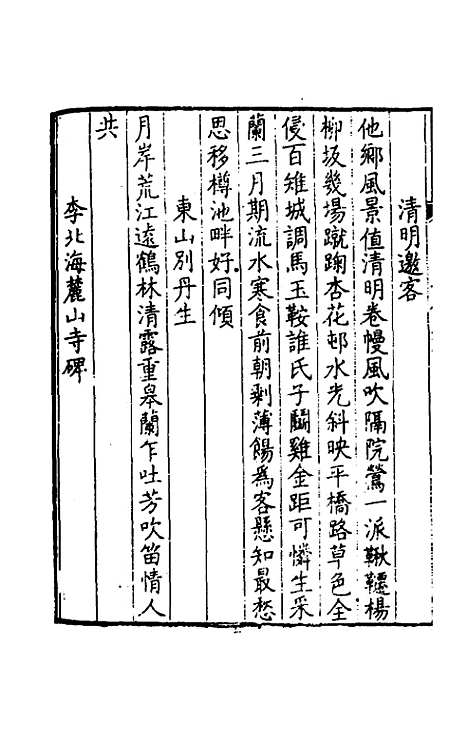 清明邀客
他鄉風景值清明卷幔風吹隔院鶯一派鞦韆楊
柳坂幾場蹴踘杏花邨水光斜映平橋路草色全
侵百雉城調馬玉鞍誰氏子鬭雞金距可憐生采
蘭三月期流水寒食前朝剩薄餳爲客懸知最愁
思移樽池畔好同傾
東山別丹生
月岸荒江遠鶴林清露重皋蘭乍吐芳吹笛情人
共
李北海麓山寺碑